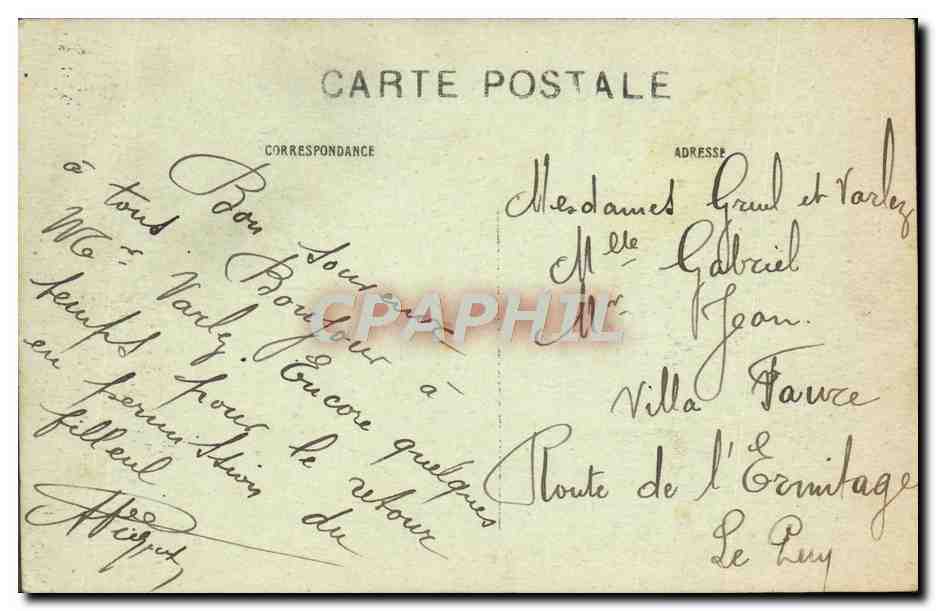 CARTE POSTALE
CORRESPONDANCE
ADRESSE
Bon souvenir
à tous. Bonjour à
Mr Varlez. Encore quelques
temps pour le retour
en permission du
filleul.
Mesdames Gruel et Varlez
Mlle Gabriel
Mr Jean.
Villa Faure
Route de l'Ermitage
Le Puy
CPAPHIL